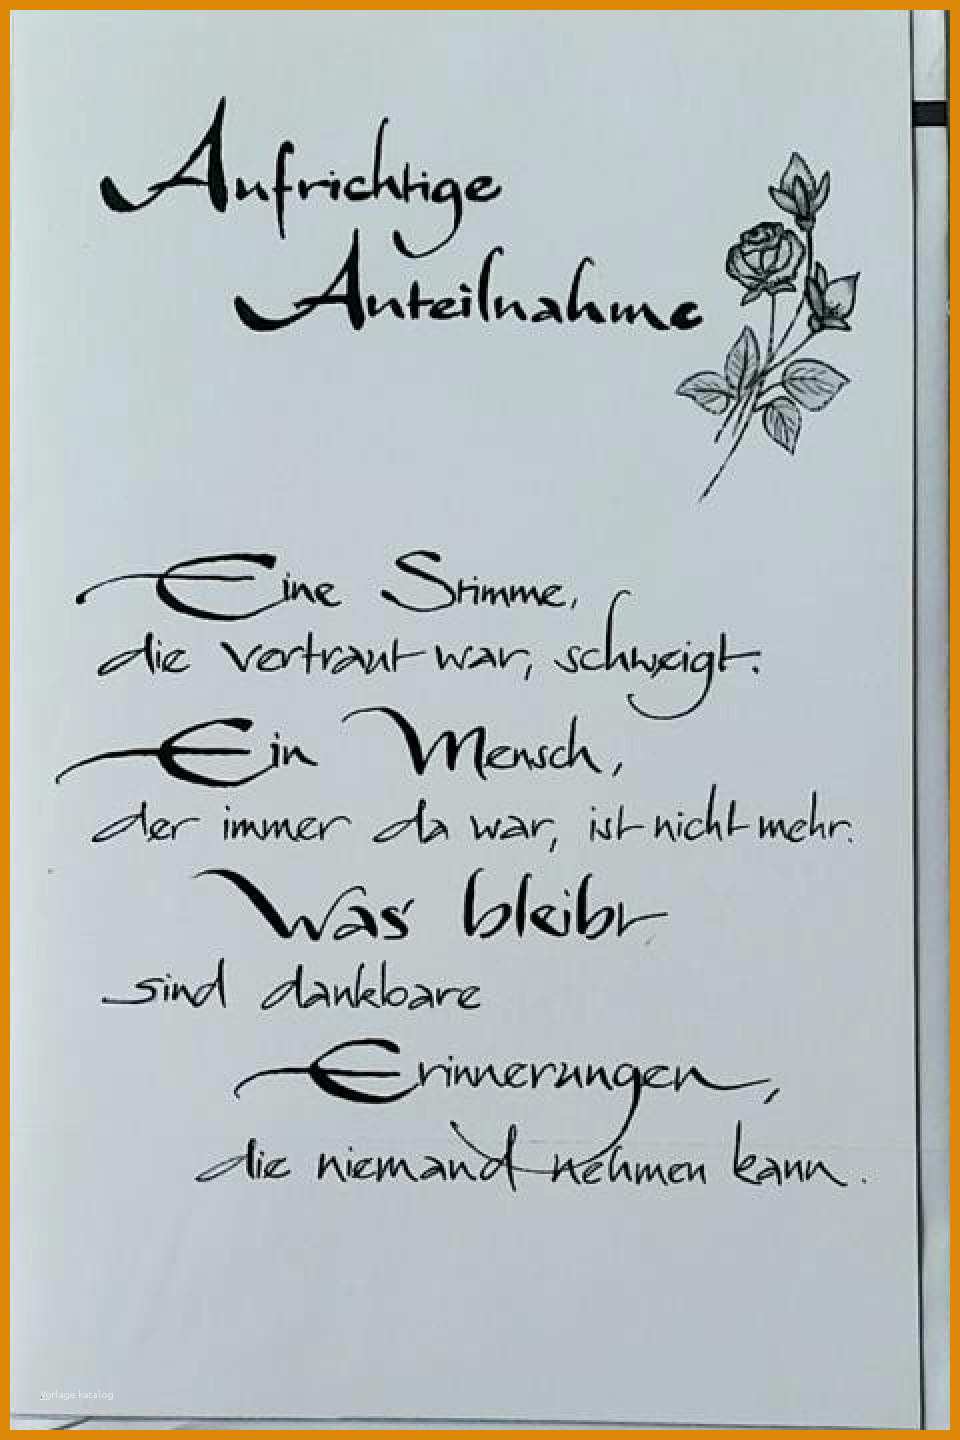 Aufrichtige
Anteilnahme
Eine Stimme,
die vertraut war, schweigt.
Ein Mensch,
der immer da war, ist nicht mehr.
Was bleibt
sind dankbare
Erinnerungen,
die niemand nehmen kann.
Vorlage katalog